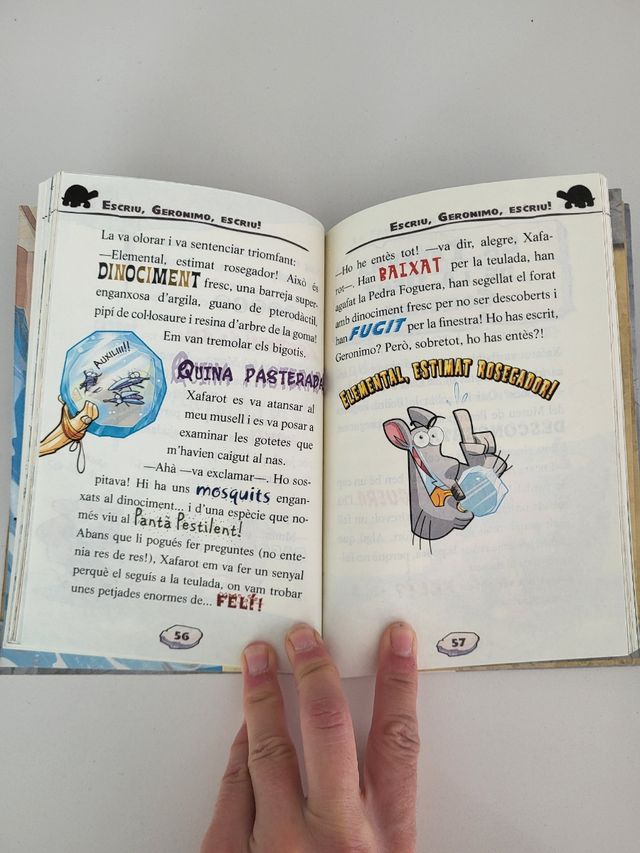 ESCRIU, GERONIMO, ESCRIU!
La va olorar i va sentenciar triomfant:
—Elemental, estimat rosegador! Això és
DINOCIMENT fresc, una barreja super-
enganxosa d'argila, guano de pterodàctil,
pipí de col·losaure i resina d'arbre de la goma!
Em van tremolar els bigotis.
AUXILIII!!
QUINA PASTERADA!
Xafarot es va atansar al
meu musell i es va posar a
examinar les gotetes que
m'havien caigut al nas.
—Ahà —va exclamar—. Ho sos-
pitava! Hi ha uns mosquits engan-
xats al dinociment... i d'una espècie que no-
més viu al Pantà Pestilent!
Abans que li pogués fer preguntes (no ente-
nia res de res!), Xafarot em va fer un senyal
perquè el seguís a la teulada, on vam trobar
unes petjades enormes de... FELÍ!
56
ESCRIU, GERONIMO, ESCRIU!
—Ho he entès tot! —va dir, alegre, Xafa-
rot—. Han BAIXAT per la teulada, han
agafat la Pedra Foguera, han segellat el forat
amb dinociment fresc per no ser descoberts i
han FUGIT per la finestra! Ho has escrit,
Geronimo? Però, sobretot, ho has entès?!
ELEMENTAL, ESTIMAT ROSEGADOR!
57